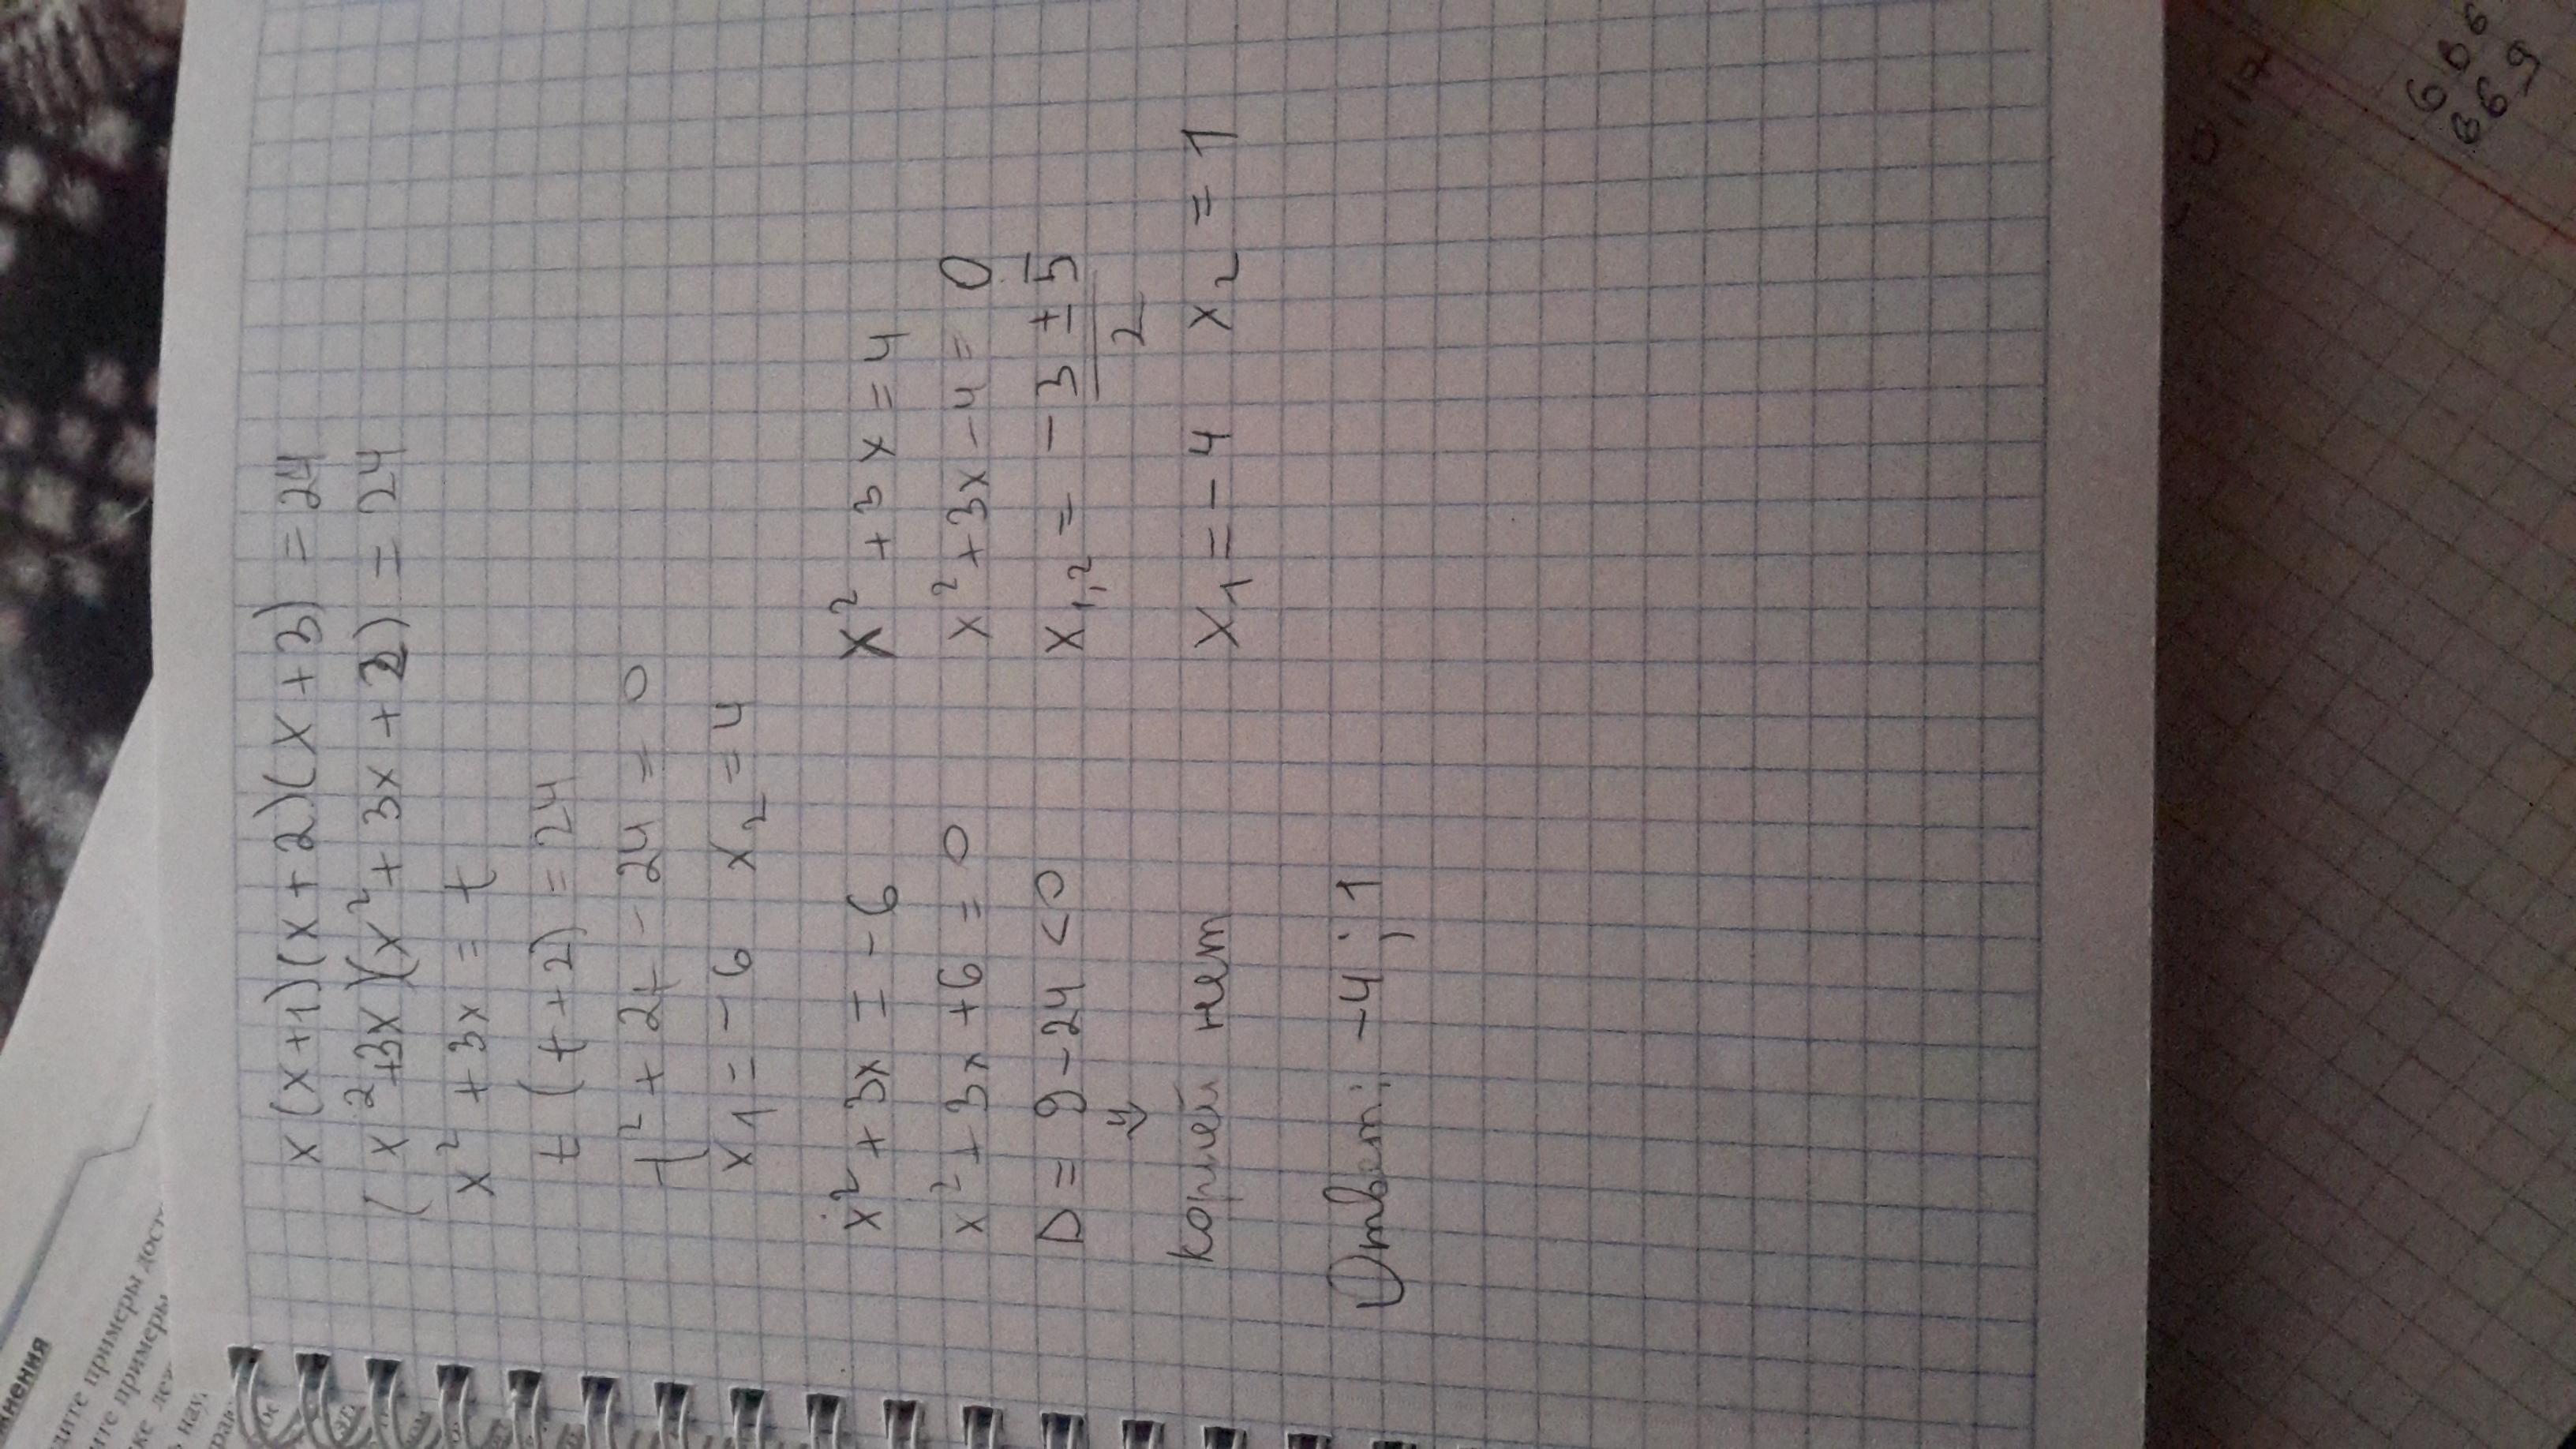 x(x+1)(x+2)(x+3) = 24
(x²+3x)(x²+3x+2) = 24
x²+3x = t
t(t+2) = 24
t²+2t-24 = 0
x₁=-6 x₂=4
x²+3x = -6
x²+3x+6 = 0
D = 9-24 <0
⇓
корней нет
x²+3x=4
x²+3x-4=0
x₁,₂ = -3±5
2
x₁=-4 x₂=1
Ответ: -4; 1
жнения
дите примеры дост
ите примеры